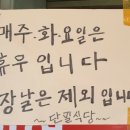 매주.화.요일은
휴무 입니다
장날은 제외 입니다
~단골식당~